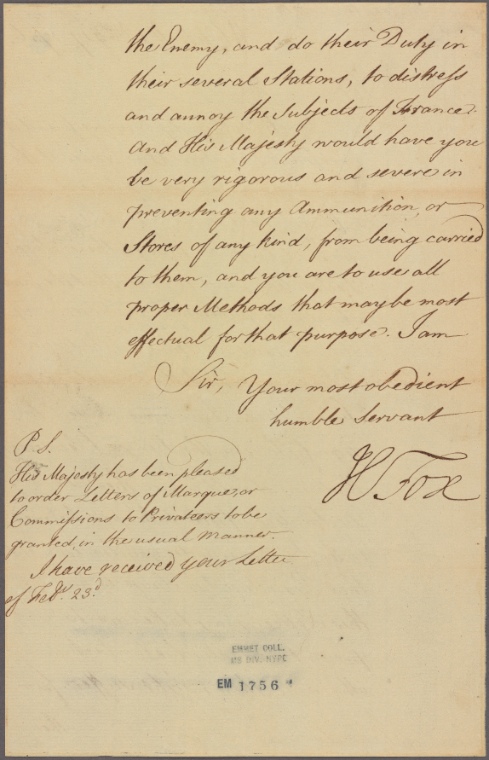 the Enemy, and do their Duty in
their several Stations, to distress
and annoy the Subjects of France.
And His Majesty would have you
be very rigorous and severe in
preventing any Ammunition, or
Stores of any kind, from being carried
to them, and you are to use all
proper Methods that may be most
effectual for that purpose. I am
Sir, Your most obedient
humble Servant
H Fox
P.S.
His Majesty has been pleased
to order Letters of Marque, or
Commissions to Privateers to be
granted, in the usual manner.
I have received your Letter
of Febry. 23.d
EMMET COLL.
MS DIV. NYPL
EM 1756